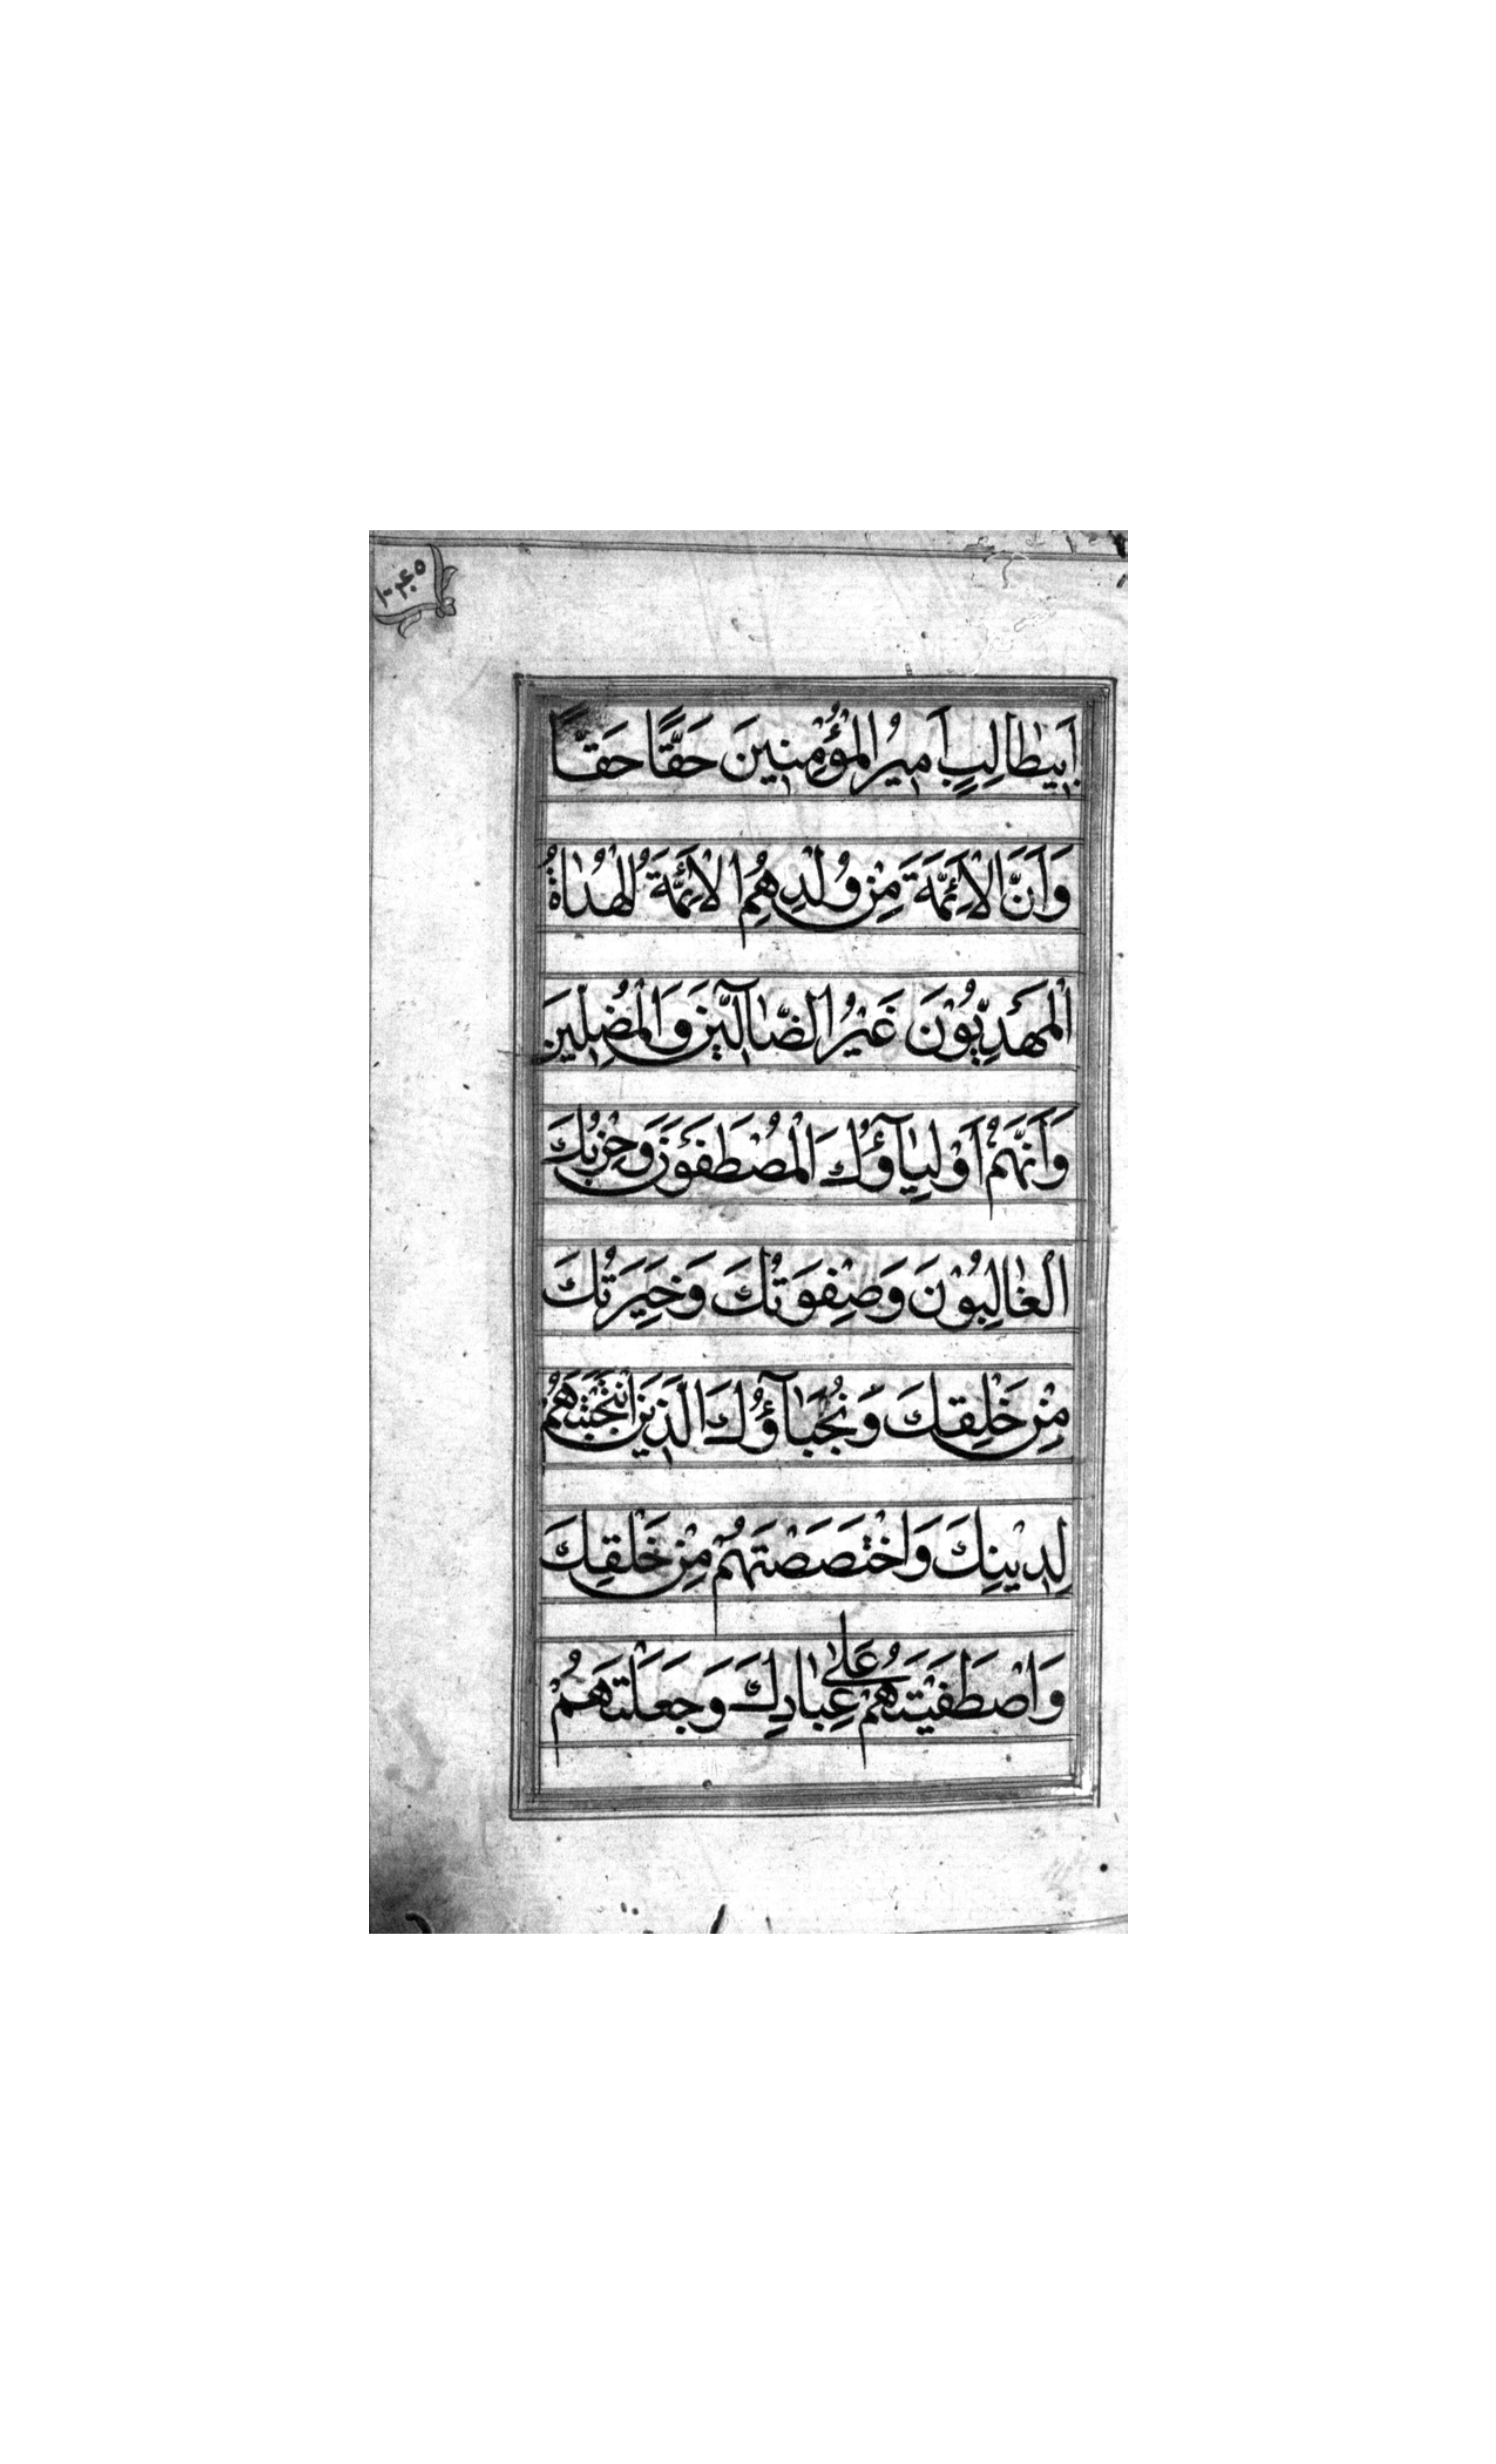 اَبيطٰالِبٍ اَميرُ الْمُؤْمِنينَ حَقًّا حَقًّا
وَاَنَّ الْاَئِمَّةَ مِنْ وُلْدِهِ هُمُ الْاَئِمَّةُ الْهُدٰاةُ
الْمَهْدِيُّونَ غَيْرُ الضّٰآلّينَ وَالْمُضِلّينَ
وَاَنَّهُمْ اَوْلِيٰآؤُكَ الْمُصْطَفَوْنَ وَحِزْبُكَ
الْغٰالِبُونَ وَصِفْوَتُكَ وَخِيَرَتُكَ
مِنْ خَلْقِكَ وَنُجَبٰآؤُكَ الَّذينَ انْتَجَبْتَهُمْ
لِدينِكَ وَاخْتَصَصْتَهُمْ مِنْ خَلْقِكَ
وَاصْطَفَيْتَهُمْ عَلٰى عِبٰادِكَ وَجَعَلْتَهُمْ